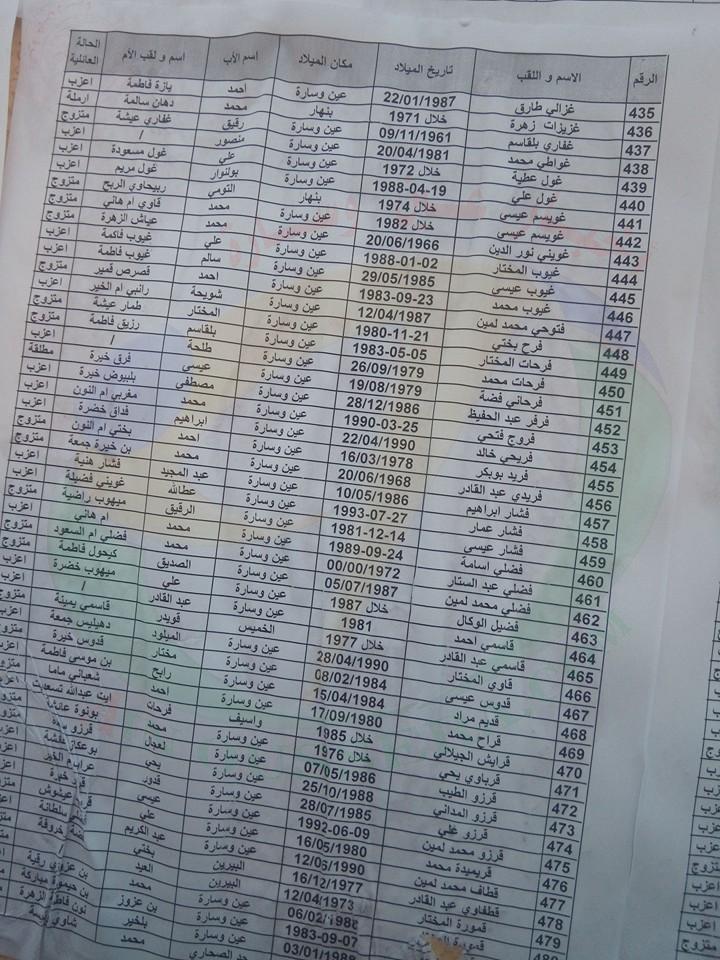 الرقم الاسم و اللقب تاريخ الميلاد مكان الميلاد اسم الأب اسم و لقب الأم الحالة العائلية
435 غزالي طارق 22/01/1987 عين وسارة احمد يازة فاطمة اعزب
436 غزيزات زهرة خلال 1971 بنهار محمد دهان سالمة ارملة
437 غفاري بلقاسم 09/11/1961 عين وسارة رفيق غفاري عيشة متزوج
438 غواطي محمد 20/04/1981 عين وسارة منصور / اعزب
439 غول عطية خلال 1972 عين وسارة علي غول مسعودة اعزب
440 غول علي 1988-04-19 عين وسارة بولنوار غول مريم اعزب
441 غويسم عيسى خلال 1974 بنهار التومي ربيحاوي الربح متزوج
442 غويسم عيسى خلال 1982 عين وسارة محمد قاوي ام هاني متزوج
443 غويني نور الدين 20/06/1966 عين وسارة محمد عياش الزهرة متزوج
444 غيوب المختار 1988-01-02 عين وسارة علي غيوب فاكمة اعزب
445 غيوب عيسى 29/05/1985 عين وسارة سالم غيوب فاطمة اعزب
446 غيوب محمد 1983-09-23 عين وسارة احمد قصرص قمير متزوج
447 فتوحي محمد لمين 12/04/1987 عين وسارة شويحة رانبي ام الخير اعزب
448 فرح بختي 1980-11-21 عين وسارة المختار طمار عيشة متزوج
449 فرحات المختار 1983-05-05 عين وسارة بلقاسم رزيق فاطمة متزوج
450 فرحات محمد 26/09/1979 عين وسارة طلحة / اعزب
451 فرحاني فضة 19/08/1979 عين وسارة عيسى فرق خيرة مطلقة
452 فرفر عبد الحفيظ 28/12/1986 عين وسارة مصطفى بلبيوض خيرة اعزب
453 فروج فتحي 1990-03-25 عين وسارة محمد مغربي ام النون اعزب
454 فريحي خالد 22/04/1990 عين وسارة ابراهيم فداق خضرة اعزب
455 فريد بوبكر 16/03/1978 عين وسارة احمد بختي ام النون متزوج
456 فريدي عبد القادر 20/06/1968 عين وسارة محمد بن خيرة جمعة متزوج
457 فشار ابراهيم 10/05/1986 عين وسارة عبد المجيد فشار هنية اعزب
458 فشار عمار 1993-07-27 عين وسارة عطالله غويني فضيلة اعزب
459 فشار عيسى 1981-12-14 عين وسارة الرقيق ميهوب راضية متزوج
460 فضلي اسامة 1989-09-24 عين وسارة محمد ام هاني اعزب
461 فضلي عبد الستار 00/00/1972 عين وسارة محمد فضلي ام السعود متزوج
462 فضلي محمد لمين 05/07/1987 عين وسارة الصديق كيحول فاطمة
463 فضيل الوكال خلال 1987 عين وسارة علي ميهوب خضرة
464 قاسمي احمد 1981 عين وسارة عبد القادر /
465 قاسمي عبد القادر خلال 1977 الخميس قويدر قاسمي يمينة
466 قاوي المختار 28/04/1990 عين وسارة الميلود دهيليس جمعة
467 قدوس عيسى 08/02/1984 عين وسارة مختار قدوس خيرة
468 قديم مراد 15/04/1984 عين وسارة رابح بن موسى فاطمة
469 قراح محمد 17/09/1980 عين وسارة احمد شعباني ماما
470 قرايش الجيلالي خلال 1985 واسيف فرحات ايت عبدالله تسعديت
471 قرباوي يحي خلال 1976 عين وسارة محمد بونوة عائشة
472 قرزو الطيب 07/05/1986 عين وسارة لعجال قرزو
473 قرزو المداني 25/10/1988 عين وسارة يحي بوعكاز
474 قرزو علي 28/07/1985 عين وسارة قدور الخير
475 قرزو محمد لمين 1992-06-09 عين وسارة عيسى خيرة
476 قريميدة محمد 16/05/1980 عين وسارة علي
477 قطاف محمد لمين 12/06/1990 البيرين عبد الكريم
478 قطفاوي عبد القادر 16/12/1977 البيرين بختي
479 قمورة المختار 12/04/1973 عين وسارة العيد بن عزوزي رقية
قمورة 06/02/1988 عين وسارة محمد بن مباركة
1983-09-07 عين وسارة بن عزوز
03/01/1988 بلخير شاوي
محمد